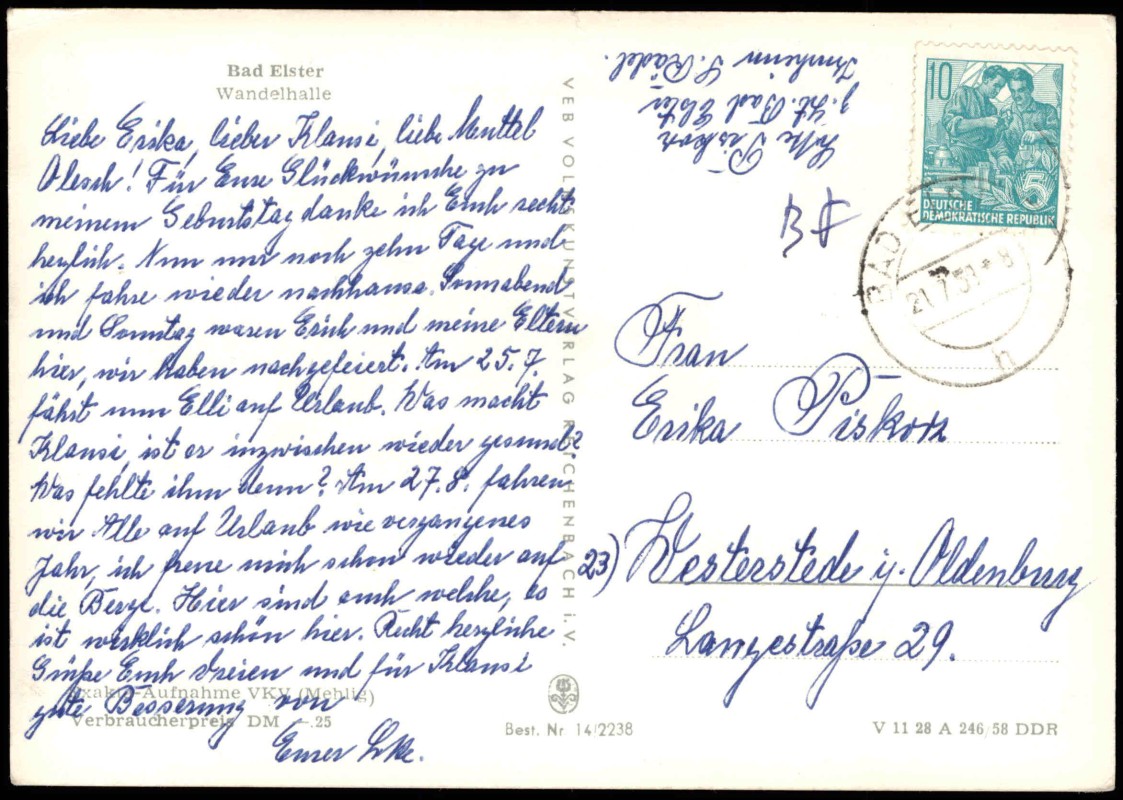 Bad Elster
Wandelhalle
Liebe Erika, lieber Klausi, liebe Muttel
Olesch! Für Eure Glückwünsche zu
meinem Geburtstag danke ich Euch recht
herzlich. Nun nur noch zehn Tage und
ich fahre wieder nachhause. Sonnabend
und Sonntag waren Erich und meine Eltern
hier, wir haben nachgefeiert. Am 25.7.
fährt nun Elli auf Urlaub. Was macht
Klausi, ist er inzwischen wieder gesund?
Was fehlte ihm denn? Am 27.8. fahren
wir Alle auf Urlaub wie vergangenes
Jahr, ich freue mich schon wieder auf
die Berge. Hier sind auch welche, es
ist wirklich schön hier. Recht herzliche
Grüße Euch Dreien und für Klausi
gute Besserung von
Eurer
Exakta-Aufnahme VKV (Mehlig)
Verbraucherpreis DM -.25
VEB VOLKSKUNSTVERLAG REICHENBACH i. V.
Best. Nr 14/2238
V 11 28 A 246/58 DDR
Piskorz
z. Zt. Bad Elster
Kurheim S. Rädel.
10
5
DEUTSCHE
DEMOKRATISCHE REPUBLIK
BAD
21.7.59
h
Frau
Erika Piskorz
23) Westerstede i. Oldenburg
Langestraße 29.